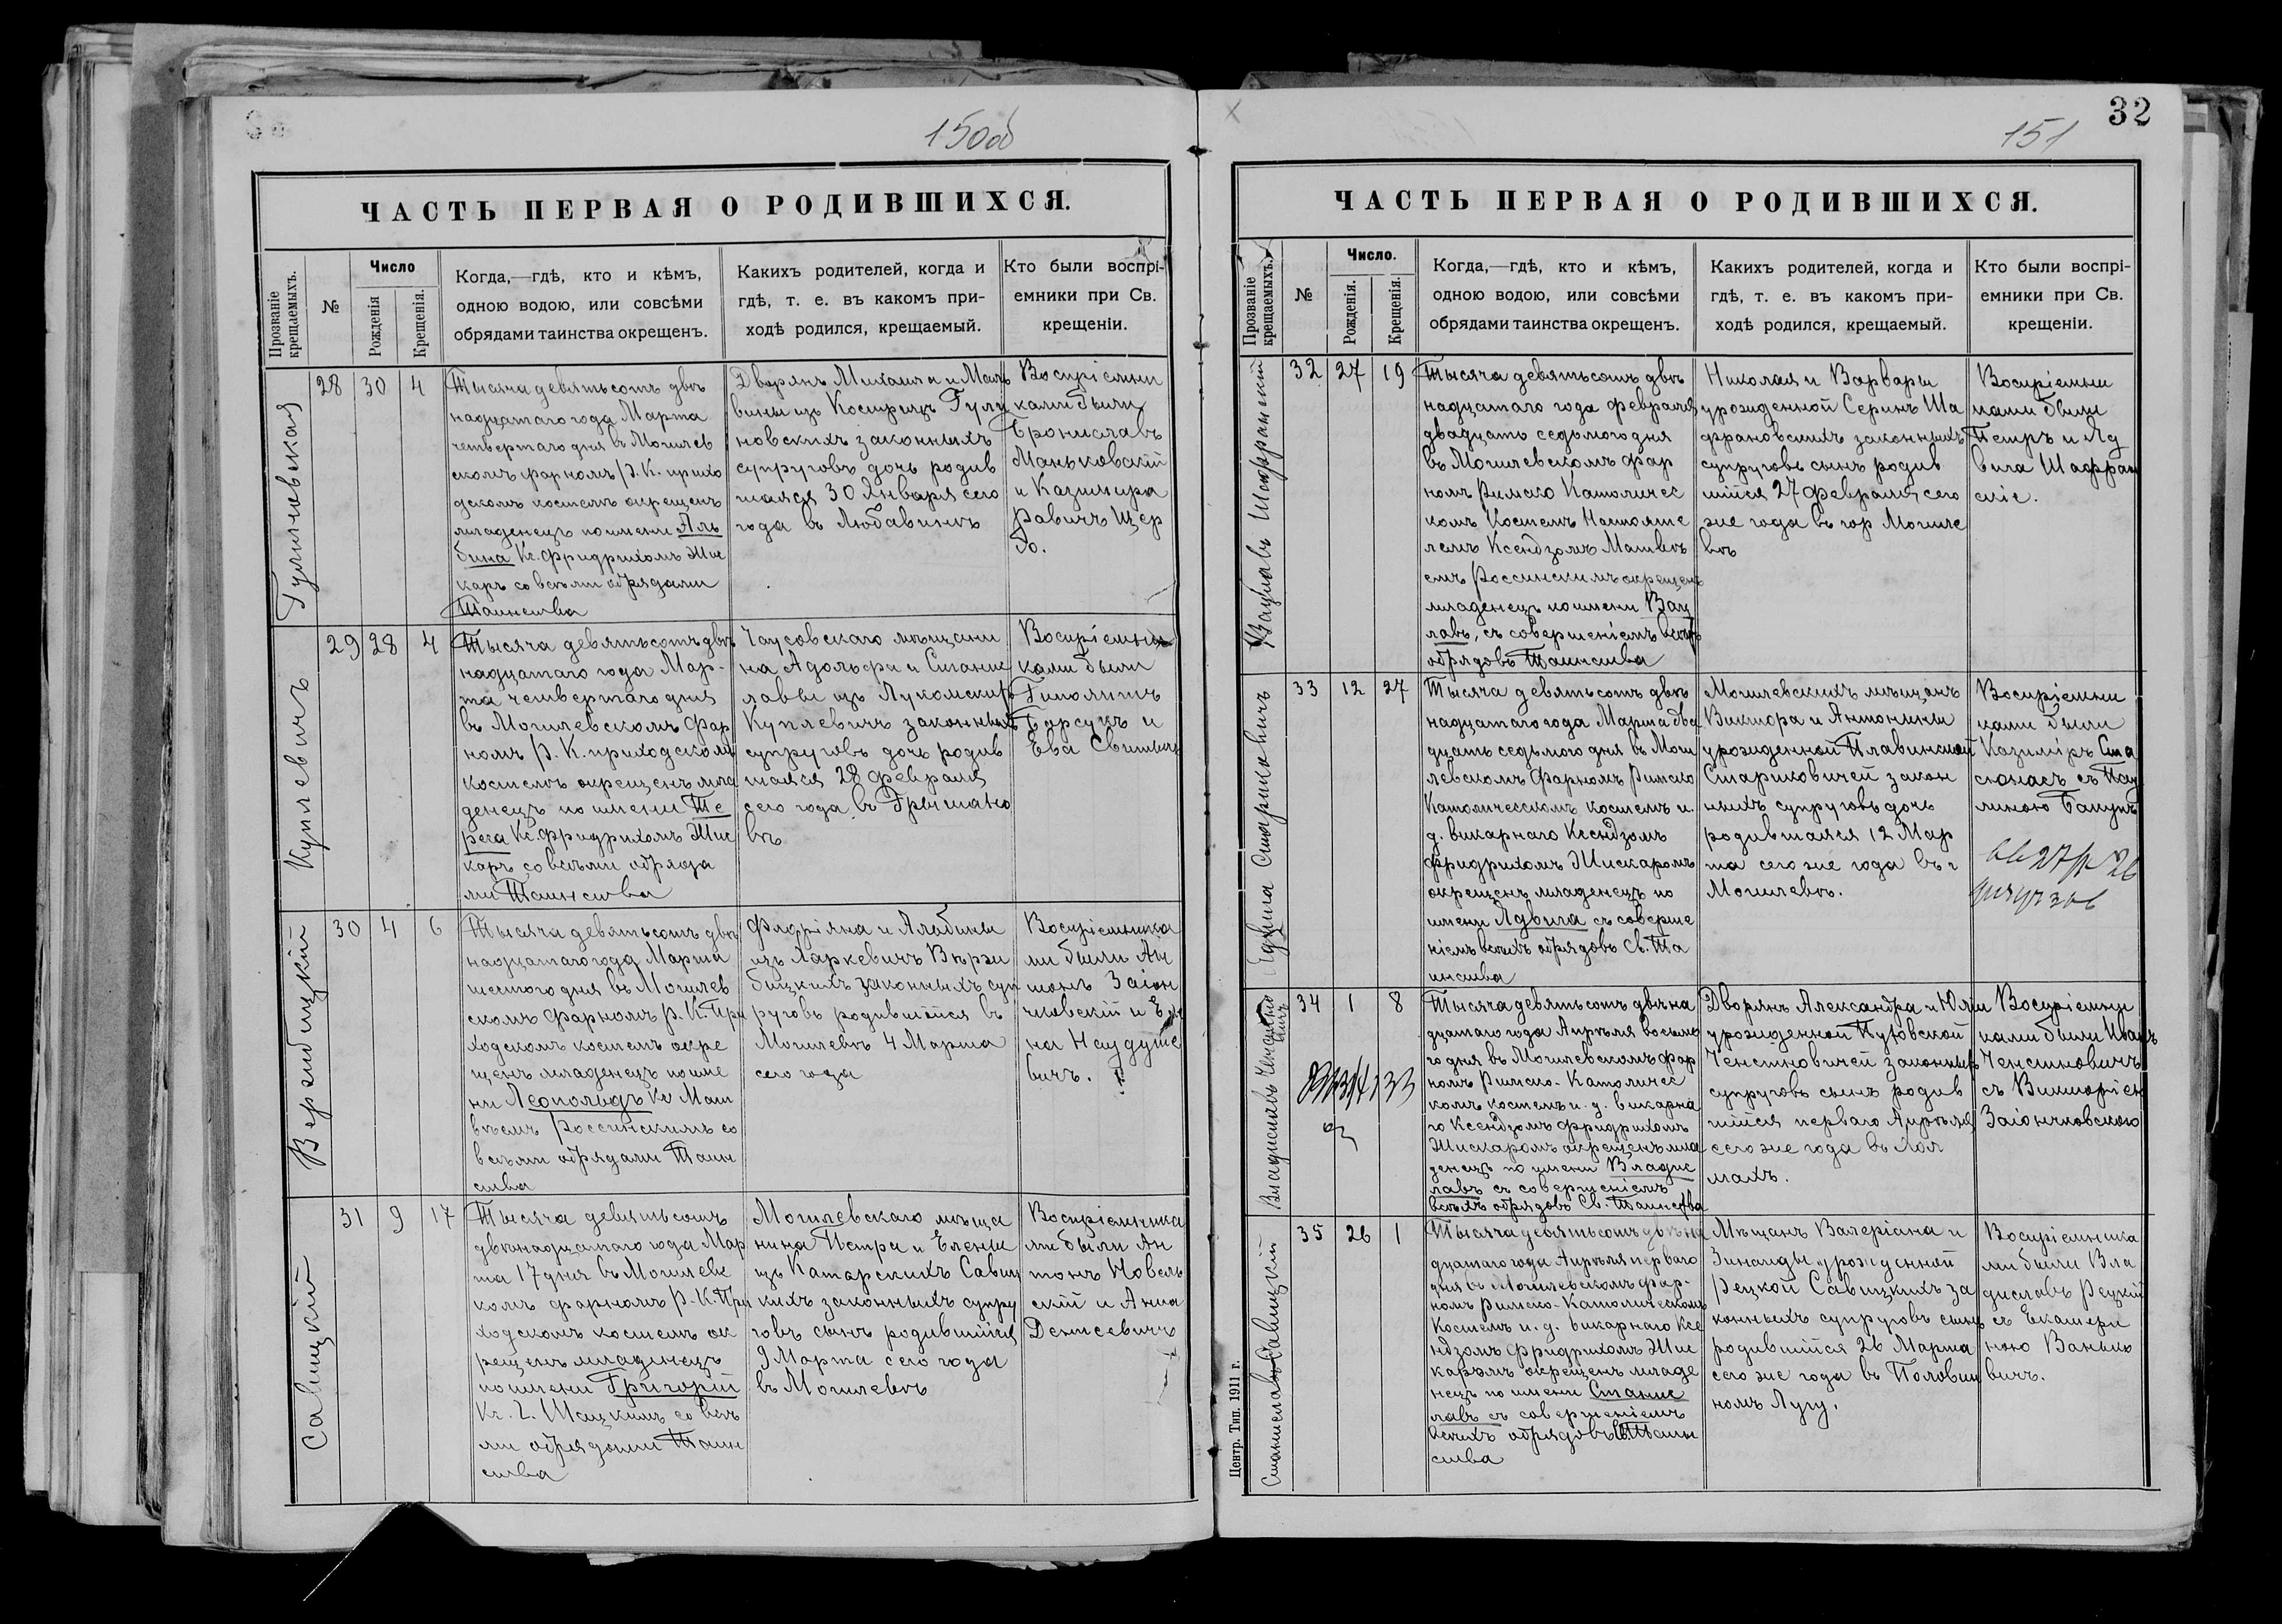 150об
ЧАСТЬ ПЕРВАЯ О РОДИВШИХСЯ.
Прозваніе крещаемыхъ.
№
Число
Рожденія
Крещенія.
Когда,—гдѣ, кто и кѣмъ,
одною водою, или совсѣми
обрядами таинства окрещенъ.
Какихъ родителей, когда и
гдѣ, т. е. въ какомъ при-
ходѣ родился, крещаемый.
Кто были воспрі-
емники при Св.
крещеніи.
Гулиновская
28 30 4
Тысяча девятьсотъ двѣ
надцатаго года Марта
четвертаго дня въ Могилев
скомъ фарномъ Р. К. прихо
дскомъ костелѣ окрещенъ
младенецъ по имени Аль
бина Кс. Фридрихомъ Жис
каръ со всѣми обрядами
Таинства
Дворянъ Михаила и Маль
вины изъ Гули
новскихъ законныхъ
супруговъ дочь родив
шаяся 30 Января сего
года въ Любавинѣ
Воспріемни
ками были
Брониславъ
Маньковскій
и Казимира
Равичъ Щер
бо.
Куплевичъ
29 28 4
Тысяча девятьсотъ двѣ
надцатаго года Мар-
та четвертаго дня
въ Могилевскомъ фар
номъ Р. К. приходскомъ
костелѣ окрещенъ мла
денецъ по имени Те
реса Кс. Фридрихомъ Жис
каръ со всѣми обряда
ми Таинства
Чаусовскаго мѣщани
на Адольфа и Станис
лавы изъ Лукомскихъ
Куплевичъ законныхъ
супруговъ дочь родив
шаяся 28 Февраля
сего года въ Грышано
вѣ
Воспріемни
ками были
Гиполитъ
Барсукъ и
Ева
Вержбицкій
30 4 6
Тысяча девятьсотъ двѣ
надцатаго года Марта
шестого дня въ Могилев
скомъ фарномъ Р. К. При
ходскомъ костелѣ окре
щенъ младенецъ по име
ни Леопольдъ Кс Мат
вѣемъ Россинскимъ со
всѣми обрядами Таин
ства
Флоріяна и Альбины
изъ Ларкевичъ Вержи
бицкихъ законныхъ суп
руговъ родившійся въ
Могилевѣ 4 Марта
сего года
Воспріемника
ми были Ан
тонъ Заіон
чковскій и Еле
на
вичъ.
Савицкій
31 9 17
Тысяча девятьсотъ
двѣнадцатаго года Мар
та 17 дня въ Могилевс
комъ фарномъ Р. К. При
ходскомъ костелѣ ок
рещенъ младенецъ
по имени Григорій
Кс. І. Шацкимъ со всѣ
ми обрядами Таин
ства
Могилевскаго мѣща
нина Петра и Елены
изъ Катарскихъ Савиц
кихъ законныхъ супру
говъ сынъ родившійся
9 Марта сего года
въ Могилевѣ
Воспріемника
ми были Ан
тонъ Новель
скій и Анна
Денисевичъ
32
151
ЧАСТЬ ПЕРВАЯ О РОДИВШИХСЯ.
Прозваніе крещаемыхъ.
№
Число.
Рожденія.
Крещенія.
Когда,—гдѣ, кто и кѣмъ,
одною водою, или совсѣми
обрядами таинства окрещенъ.
Какихъ родителей, когда и
гдѣ, т. е. въ какомъ при-
ходѣ родился, крещаемый.
Кто были воспрі-
емники при Св.
крещеніи.
Вацлавъ Шафранскій
32 27 19
Тысяча девятьсотъ двѣ
надцатаго года февраля
двадцать седьмого дня
въ Могилевскомъ фар
номъ Римско Католичес
комъ Костелѣ Настояте
лемъ Ксендзомъ Матвѣ
емъ Россинскимъ окрещенъ
младенецъ по имени Вац
лавъ, съ совершеніемъ всѣхъ
обрядовъ Таинства
Николая и Варвары
урожденной Серинъ Ша
франовскихъ законныхъ
супруговъ сынъ родив
шійся 27 февраля сего
же года въ гор Могиле
вѣ
Воспріемни
ками были
Петръ и Яд
вига Шафран
скіе.
Ядвига Стариковичъ
33 12 27
Тысяча девятьсотъ двѣ
надцатаго года Марта два
дцать седьмого дня въ Моги
левскомъ Фарномъ Римско
Католическомъ костелѣ и.
д. викарнаго Ксендзомъ
Фридрихомъ Жискаромъ
окрещенъ младенецъ по
имени Ядвига съ соверше
ніемъ всѣхъ обрядовъ Св. Та
инства
Могилевскихъ мѣщанъ
Виктора и Антонины
урожденной Плавинской
Стариковичей закон
ныхъ супруговъ дочь
родившаяся 12 Мар
та сего же года въ г
Могилевѣ.
Воспріемни
ками были
Казиміръ Ста
сюнасъ съ Пау
линою
Владиславъ Ченстиновичъ
34 1 8
Тысяча девятьсотъ двѣна
дцатаго года Апрѣля восьмо
го дня въ Могилевскомъ фар
номъ Римско-Католичес
комъ костелѣ и. д. викарна
го Ксендзомъ Фридрихомъ
Жискаромъ окрещенъ мла
денецъ по имени Владис
лавъ съ совершеніемъ
всѣхъ обрядовъ Св. Таинства
Дворянъ Александра и Юліи
урожденной Путовской
Ченстиновичей законныхъ
супруговъ сынъ родив
шійся перваго Апрѣля
сего же года въ Хол
махъ.
Воспріемни
ками были Иванъ
Ченстиновичъ
съ Викторіею
Заіончковскою
Станиславъ Савицкій
35 26 1
Тысяча девятьсотъ двѣна
дцатаго года Апрѣля перваго
дня въ Могилевскомъ фар-
номъ Римско-Католическомъ
Костелѣ и. д. викарнаго Ксе
ндзомъ Фридрихомъ Жис
каромъ окрещенъ младе
нецъ по имени Станис
лавъ съ совершеніемъ
всѣхъ обрядовъ Св. Таин
ства
Мѣщанъ Валеріана и
Зинаиды урожденной
Рецкой Савицкихъ за
конныхъ супруговъ сынъ
родившійся 26 Марта
сего же года въ Половин
номъ Лугу.
Воспріемника
ми были Вла
диславъ Рецкій
съ Екатери
ною Ванько
вичъ.
Центр. Тип. 1911 г.